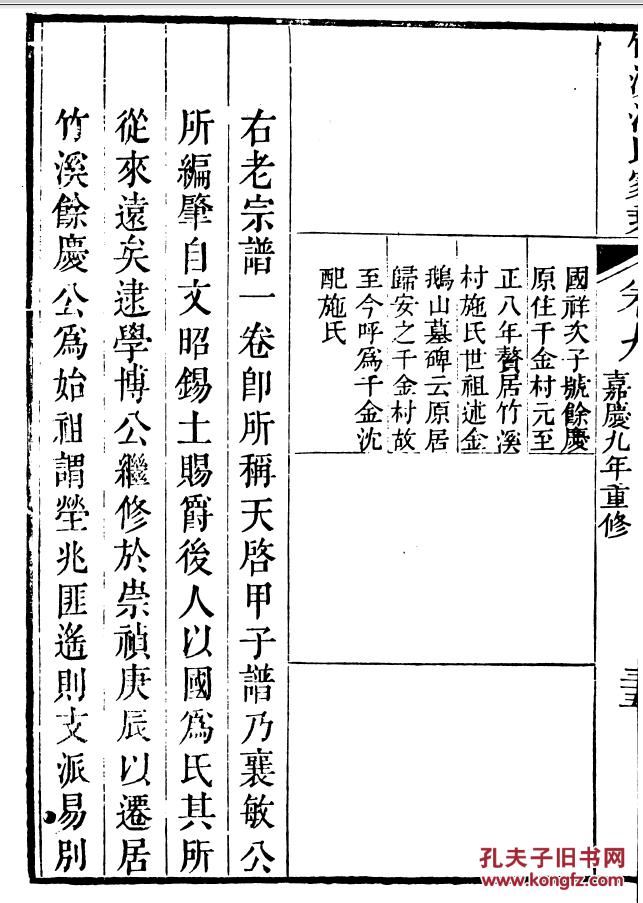 竹溪沈氏家乘
卷九
嘉慶九年重修
三五
國祥次子號餘慶
原住千金村元至
正八年贅居竹溪
村施氏世祖述金
鵝山墓碑云原居
歸安之千金村故
至今呼爲千金沈
配施氏
右老宗譜一卷卽所稱天啓甲子譜乃襄敏公
所編肇自文昭錫土賜爵後人以國爲氏其所
從來遠矣逮學博公繼修於崇禎庚辰以遷居
竹溪餘慶公爲始祖謂塋兆匪遙則支派易別
孔夫子旧书网
www.kongfz.com